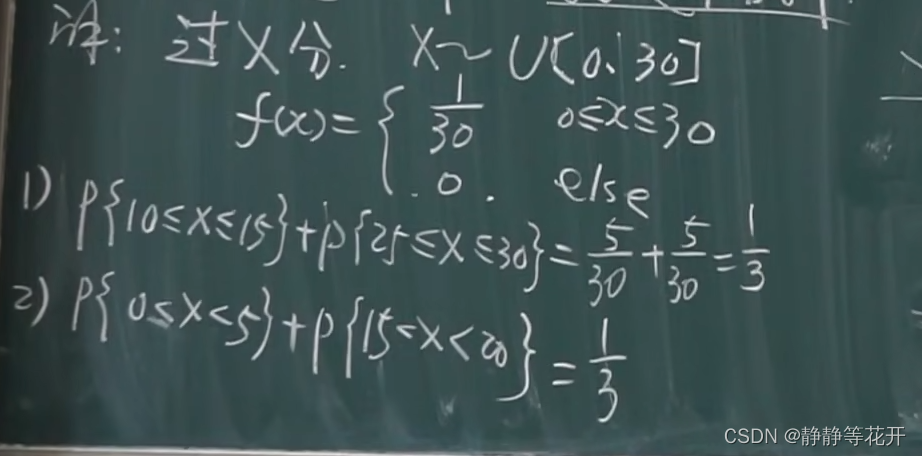 解: 过X分. X~U[0, 30]
f(x)={ 1/30 0≤x≤30
0. else
1) P{10≤X≤15}+P{25≤X≤30}=5/30+5/30=1/3
2) P{0≤X<5}+P{15<X<20}=1/3
CSDN @静静等花开